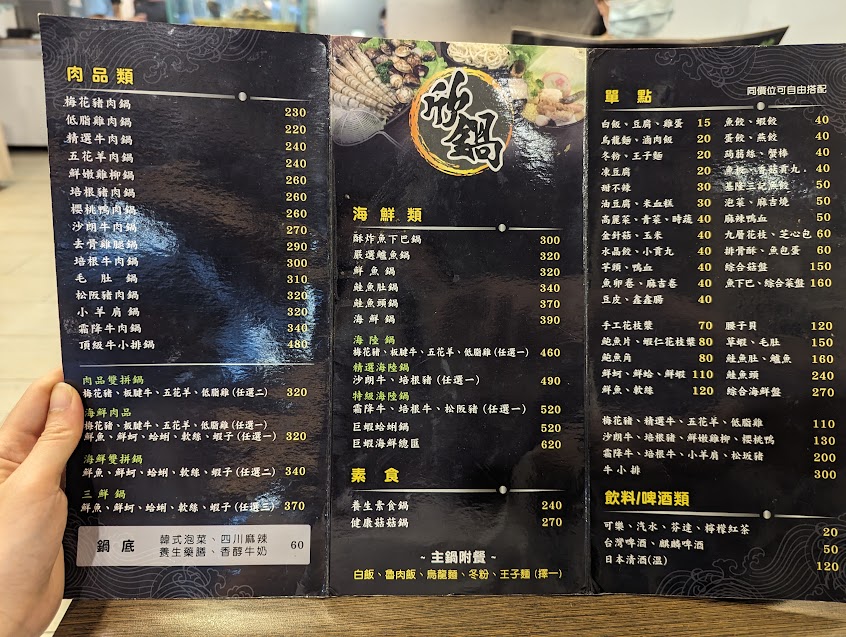 肉品類
梅花豬肉鍋 230
低脂雞肉鍋 220
精選牛肉鍋 240
五花羊肉鍋 240
鮮嫩雞柳鍋 260
培根豬肉鍋 260
櫻桃鴨肉鍋 260
沙朗牛肉鍋 270
去骨雞腿鍋 290
培根牛肉鍋 300
毛肚鍋 310
松阪豬肉鍋 320
小羊肩鍋 320
霜降牛肉鍋 340
頂級牛小排鍋 480
肉品雙拼鍋
梅花豬、板腱牛、五花羊、低脂雞(任選二) 320
海鮮肉品
梅花豬、板腱牛、五花羊、低脂雞(任選一)
鮮魚、鮮蚵、蛤蜊、軟絲、蝦子(任選一) 320
海鮮雙拼鍋
鮮魚、鮮蚵、蛤蜊、軟絲、蝦子(任選二) 340
三鮮鍋
鮮魚、鮮蚵、蛤蜊、軟絲、蝦子(任選三) 370
鍋底 韓式泡菜、四川麻辣
養生藥膳、香醇牛奶 60
鍋
海鮮類
酥炸魚下巴鍋 300
嚴選鱸魚鍋 320
鮮魚鍋 320
鮭魚肚鍋 340
鮭魚頭鍋 370
海鮮鍋 390
海陸鍋
梅花豬、板腱牛、五花羊、低脂雞(任選一) 460
精選海陸鍋
沙朗牛、培根豬(任選一) 490
特級海陸鍋
霜降牛、培根牛、松阪豬(任選一) 520
巨蝦蛤蜊鍋 520
巨蝦海鮮總匯 620
素食
養生素食鍋 240
健康菇菇鍋 270
~ 主鍋附餐 ~
白飯、魯肉飯、烏龍麵、冬粉、王子麵(擇一)
單點 同價位可自由搭配
白飯、豆腐、雞蛋 15
烏龍麵、滷肉飯 20
冬粉、王子麵 20
凍豆腐 20
甜不辣 30
油豆腐、米血糕 30
高麗菜、青菜、時蔬 40
金針菇、玉米 40
水晶餃、小貢丸 40
芋頭、鴨血 40
魚卵卷、麻吉卷 40
豆皮、鑫鑫腸 40
魚餃、蝦餃 40
蛋餃、燕餃 40
蒟蒻絲、蟹棒 40
香菇貢丸 40
基隆三記魚餃 50
泡菜、麻吉燒 50
麻辣鴨血 50
九層花枝、芝心包 60
排骨酥、魚包蛋 60
綜合菇盤 150
魚下巴、綜合菜盤 160
手工花枝漿 70
鮑魚片、蝦仁花枝漿 80
鮑魚角 80
鮮蚵、鮮蛤、鮮蝦 110
鮮魚、軟絲 120
腰子貝 120
草蝦、毛肚 150
鮭魚肚、鱸魚 160
鮭魚頭 240
綜合海鮮盤 270
梅花豬、精選牛、五花羊、低脂雞 110
沙朗牛、培根豬、鮮嫩雞柳、櫻桃鴨 130
霜降牛、培根牛、小羊肩、松坂豬 200
牛小排 300
飲料/啤酒類
可樂、汽水、芬達、檸檬紅茶 20
台灣啤酒、麒麟啤酒 50
日本清酒(溫) 120